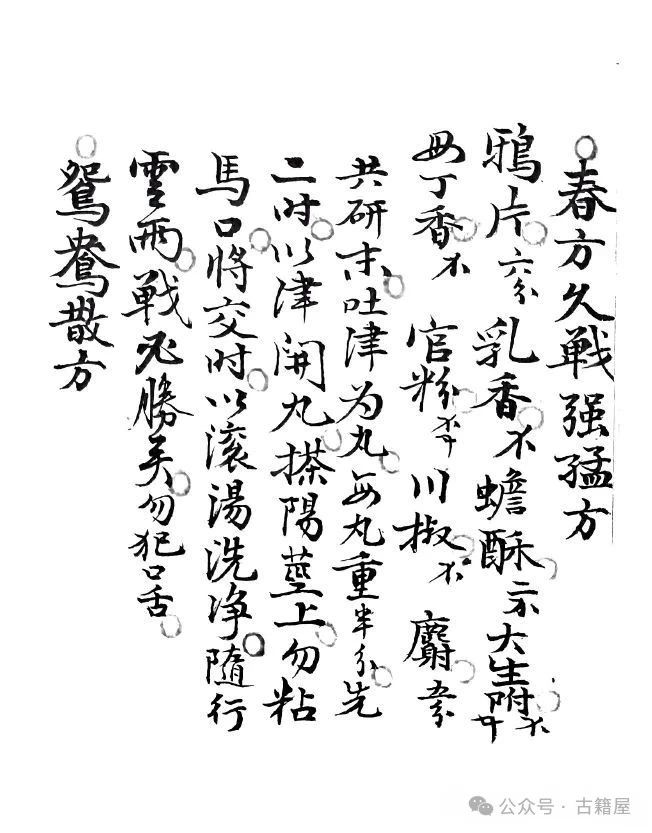 春方久戦强猛方
鴉片六分 乳香 蟾酥 大生附
母丁香 官粉 川椒 麝五分
共研末吐津为丸每丸重半分先
二时以津開丸搽陽莖上勿粘
馬口將交时以滚湯洗净随行
雲雨戦必勝矣勿犯口舌
鴛鴦散方
公众号·古籍屋